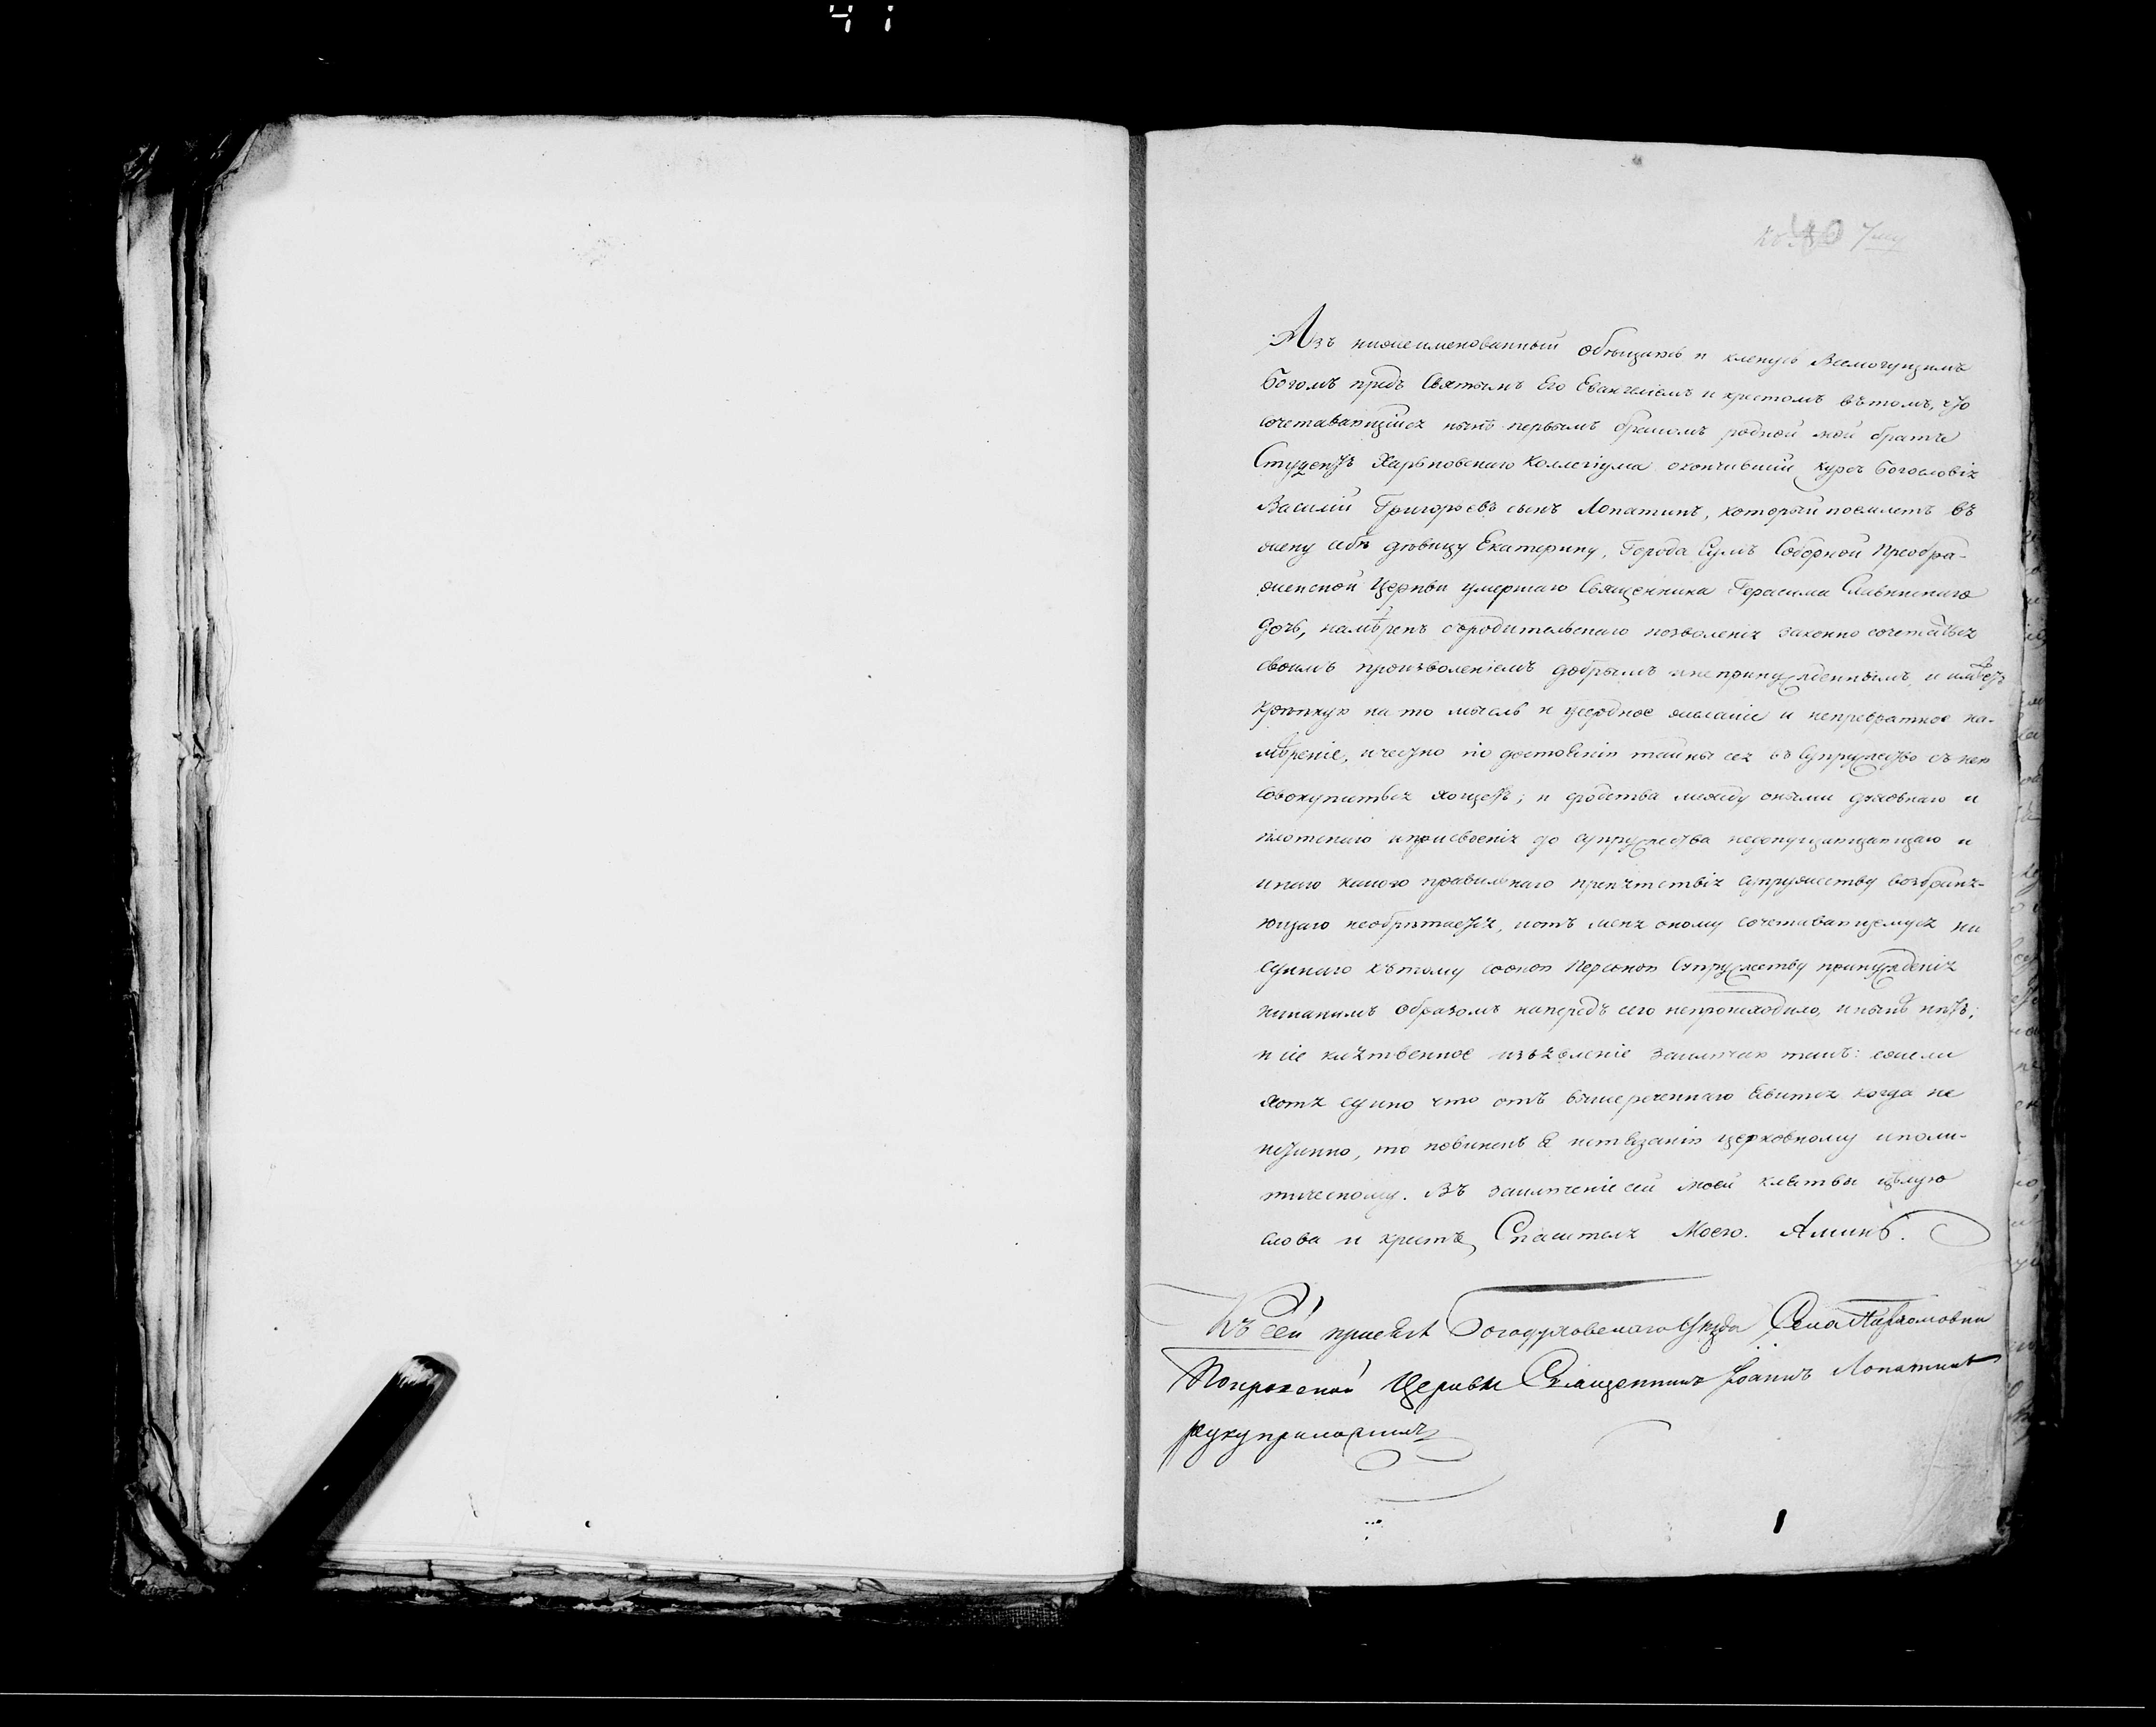 40
Азъ нижеименованный обѣщаюсь и кленусь Всемогущимъ
Богомъ предъ Святымъ Его Евангелiемъ и крестомъ въ томъ, что
сочетавающiйся нынѣ первымъ бракомъ родной мой братъ
Студентъ Харьковскаго Коллегiума окончившiй курсъ Богословiя
Василiй Григорьевъ сынъ Лопатинъ, который поемлетъ въ
жену себѣ дѣвицу Екатерину, Города Сумъ Соборной Преобра-
женской Церкви умершаго Священника Герасима
дочь, намѣренъ съ родительскаго позволенiя законно сочетаться
своимъ произволенiемъ добрымъ и непринужденнымъ, и имѣетъ
крѣпкую на то мысль и усердное желанiе и непревратное на-
мѣренiе, и честно по достоянiю тайны сея въ Супружество съ нею
совокупиться хощетъ; и сродства между оными духовнаго и
плотскаго и присвоенiя до супружества недопущающаго и
инаго какого правильнаго препятствiя супружеству возбраня-
ющаго необрѣтается, и отъ мене оному сочетавающемуся ни
единаго къ тому съ оною Персоною Супружеству принужденiя
никакимъ образомъ напередъ сего непроисходило, и нынѣ нѣтъ;
и сiе клятвенное изъявленiе заключаю такъ: ежели
хотя едино что отъ вышереченнаго явится когда не
истинно, то повиненъ я истязанiю церковному и поли-
тическому. Въ заключенiе сей моей клятвы цѣлую
слова и крестъ Спасителя Моего. Аминь.
Къ сей присягѣ Богодуховскаго Уѣзда Села Пархомовки
Покровской Церкви Священникъ Iоаннъ Лопатинъ
руку приложилъ